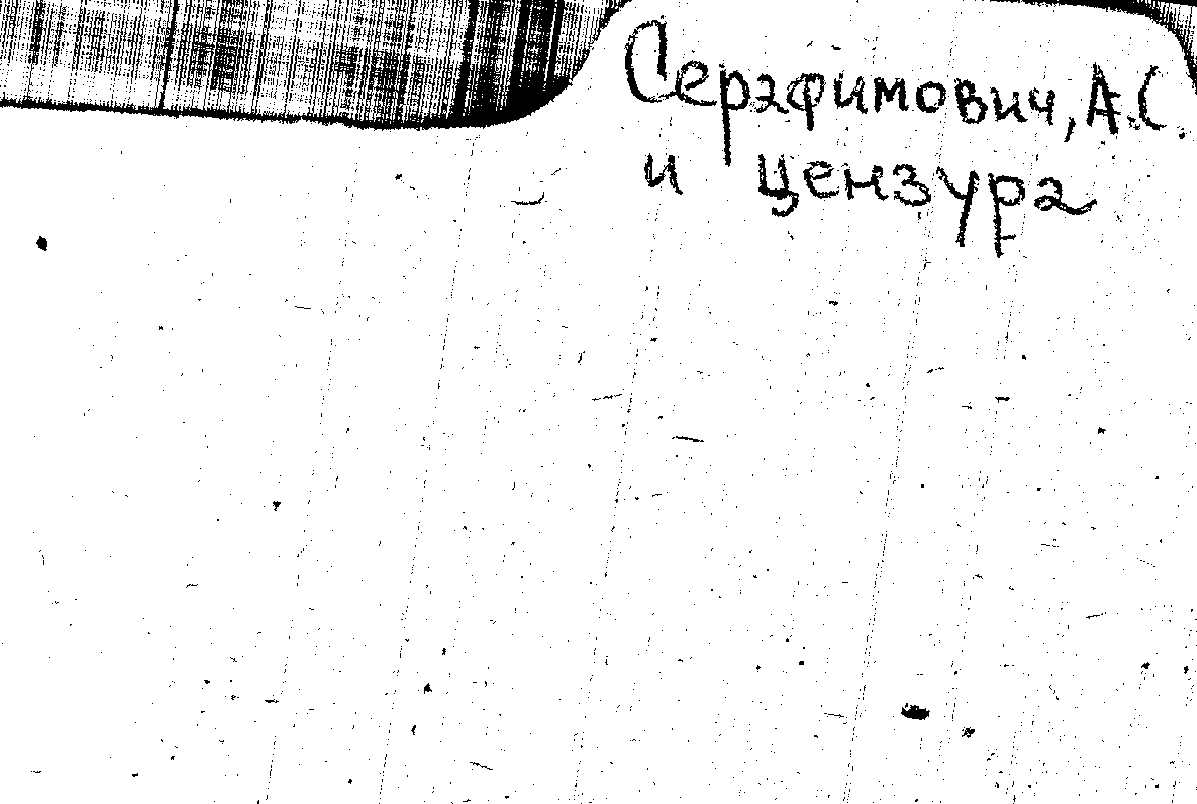 Серафимович, А.С.
и цензура